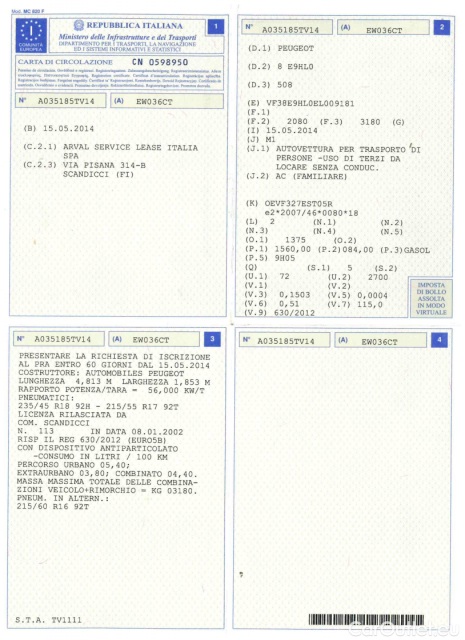 Mod. MC 820 F
I
COMUNITÀ EUROPEA
REPUBBLICA ITALIANA
1
Ministero delle Infrastrutture e dei Trasporti
DIPARTIMENTO PER I TRASPORTI, LA NAVIGAZIONE
ED I SISTEMI INFORMATIVI E STATISTICI
CARTA DI CIRCOLAZIONE CN 0598950
N° A035185TV14 (A) EW036CT
(B) 15.05.2014
(C.2.1) ARVAL SERVICE LEASE ITALIA
SPA
(C.2.3) VIA PISANA 314-B
SCANDICCI (FI)
N° A035185TV14 (A) EW036CT 2
(D.1) PEUGEOT
(D.2) 8 E9HL0
(D.3) 508
(E) VF38E9HL0EL009181
(F.1)
(F.2) 2080 (F.3) 3180 (G)
(I) 15.05.2014
(J) M1
(J.1) AUTOVETTURA PER TRASPORTO DI
PERSONE -USO DI TERZI DA
LOCARE SENZA CONDUC.
(J.2) AC (FAMILIARE)
(K) OEVF327EST05R
e2*2007/46*0080*18
(L) 2 (N.1) (N.2)
(N.3) (N.4) (N.5)
(O.1) 1375 (O.2)
(P.1) 1560,00 (P.2)084,00 (P.3)GASOL
(P.5) 9H05
(Q) (S.1) 5 (S.2)
(U.1) 72 (U.2) 2700
(V.1) (V.2)
(V.3) 0,1503 (V.5) 0,0004
(V.6) 0,51 (V.7) 115,0
(V.9) 630/2012
IMPOSTA
DI BOLLO
ASSOLTA
IN MODO
VIRTUALE
N° A035185TV14 (A) EW036CT 3
PRESENTARE LA RICHIESTA DI ISCRIZIONE
AL PRA ENTRO 60 GIORNI DAL 15.05.2014
COSTRUTTORE: AUTOMOBILES PEUGEOT
LUNGHEZZA 4,813 M LARGHEZZA 1,853 M
RAPPORTO POTENZA/TARA = 56,000 KW/T
PNEUMATICI:
235/45 R18 92H - 215/55 R17 92T
LICENZA RILASCIATA DA
COM. SCANDICCI
N. 113 IN DATA 08.01.2002
RISP IL REG 630/2012 (EURO5B)
CON DISPOSITIVO ANTIPARTICOLATO
-CONSUMO IN LITRI / 100 KM
PERCORSO URBANO 05,40;
EXTRAURBANO 03,80; COMBINATO 04,40.
MASSA MASSIMA TOTALE DELLE COMBINA-
ZIONI VEICOLO+RIMORCHIO = KG 03180.
PNEUM. IN ALTERN.:
215/60 R16 92T
S.T.A. TV1111
N° A035185TV14 (A) EW036CT 4